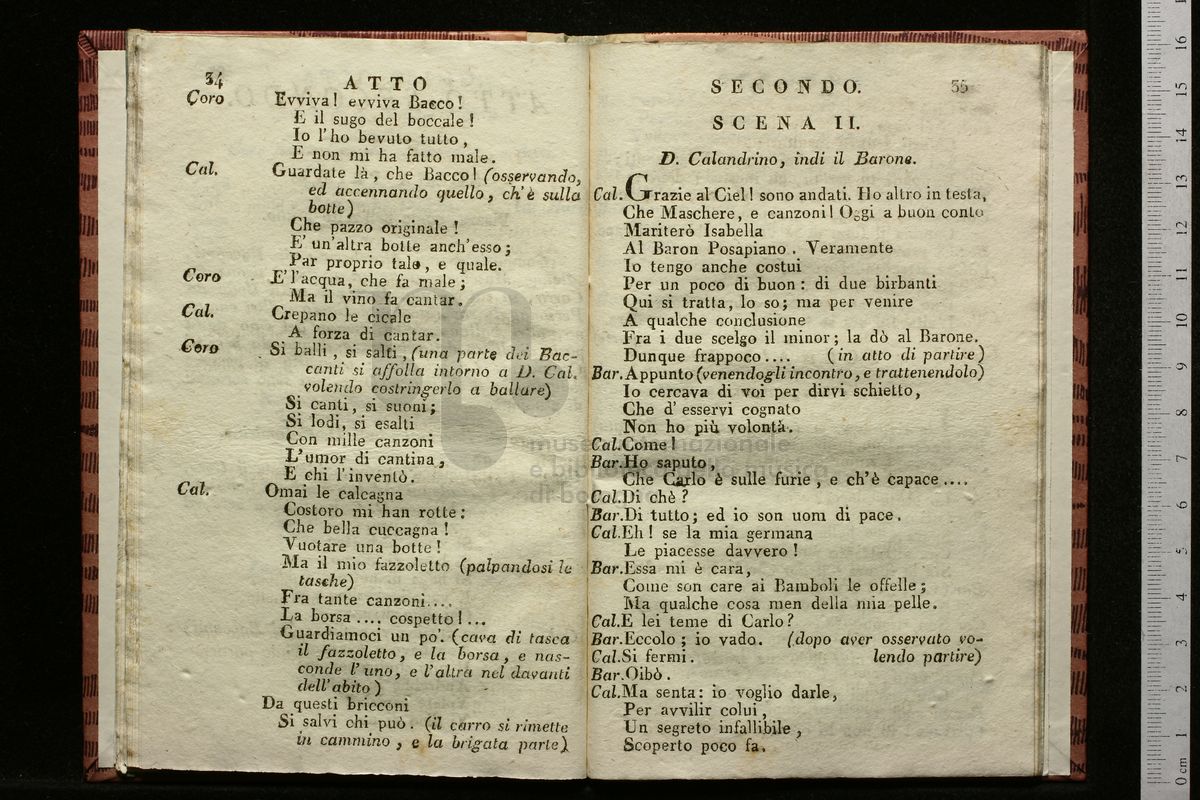 34
ATTO
Coro Evviva! evviva Bacco!
E il sugo del boccale!
Io l'ho bevuto tutto,
E non mi ha fatto male.
Cal. Guardate là, che Bacco! (osservando,
ed accennando quello, ch'è sulla
botte)
Che pazzo originale!
E' un'altra botte anch'esso;
Par proprio tale, e quale.
Coro E' l'acqua, che fa male;
Ma il vino fa cantar.
Cal. Crepano le cicale
A forza di cantar.
Coro Si balli, si salti, (una parte dei Bac-
canti si affolla intorno a D. Cal.
volendo costringerlo a ballare)
Si canti, si suoni;
Si lodi, si esalti
Con mille canzoni
L'umor di cantina,
E chi l'inventò.
Cal. Omai le calcagna
Costoro mi han rotte:
Che bella cuccagna!
Vuotare una botte!
Ma il mio fazzoletto (palpandosi le
tasche)
Fra tante canzoni....
La borsa .... cospetto!...
Guardiamoci un po'. (cava di tasca
il fazzoletto, e la borsa, e nas-
conde l'uno, e l'altra nel davanti
dell'abito)
Da questi bricconi
Si salvi chi può. (il carro si rimette
in cammino, e la brigata parte)
SECONDO. 35
SCENA II.
D. Calandrino, indi il Barone.
Cal. Grazie al Ciel! sono andati. Ho altro in testa,
Che Maschere, e canzoni! Oggi a buon conto
Mariterò Isabella
Al Baron Posapiano. Veramente
Io tengo anche costui
Per un poco di buon: di due birbanti
Qui si tratta, lo so; ma per venire
A qualche conclusione
Fra i due scelgo il minor; la dò al Barone.
Dunque frappoco.... (in atto di partire)
Bar. Appunto (venendogli incontro, e trattenendolo)
Io cercava di voi per dirvi schietto,
Che d'esservi cognato
Non ho più volontà.
Cal. Come!
Bar. Ho saputo,
Che Carlo è sulle furie, e ch'è capace ....
Cal. Di chè?
Bar. Di tutto; ed io son uom di pace.
Cal. Eh! se la mia germana
Le piacesse davvero!
Bar. Essa mi è cara,
Come son care ai Bamboli le offelle;
Ma qualche cosa men della mia pelle.
Cal. E lei teme di Carlo?
Bar. Eccolo; io vado. (dopo aver osservato vo-
Cal. Si fermi. lendo partire)
Bar. Oibò.
Cal. Ma senta: io voglio darle,
Per avvilir colui,
Un segreto infallibile,
Scoperto poco fa.